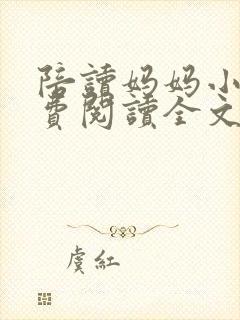 陪讀妈妈小
費閱讀全文
虞紅